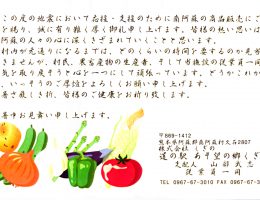 この度の地震において応援・支援のために南阿蘇の商品販売にご
を賜り、誠に有り難く厚く御礼申し上げます。皆様の熱い思いは
阿蘇の人々の心に深くきざまれていくことと思います。
村内が見違りになるまでは、どのくらいの時間を要するのか見当
きませんが、村民、農畜産物の生産者、そして当施設の従業員一同
気を取り戻そうと心を一つにして頑張っています。どうかこれか
か、いっそうのご厚誼をよろしくお願い申し上げます。
暑さ厳しき折、皆様のご健康をお祈り致します。
暑中お見舞い申し上げます。
〒869-1412
熊本県阿蘇郡南阿蘇村久石2807
株式会社 くぎの
道の駅 あそ望の郷くぎ
支配人
従業員一同
TEL 0967-67-3010 FAX 0967-67-3